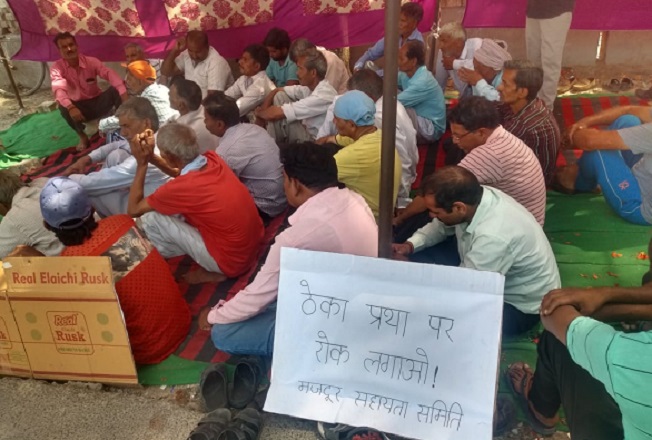 Real Elaichi Rusk
Real
ठेका प्रथा पर
रोक लगाओ!
मजदूर सहायता समिति